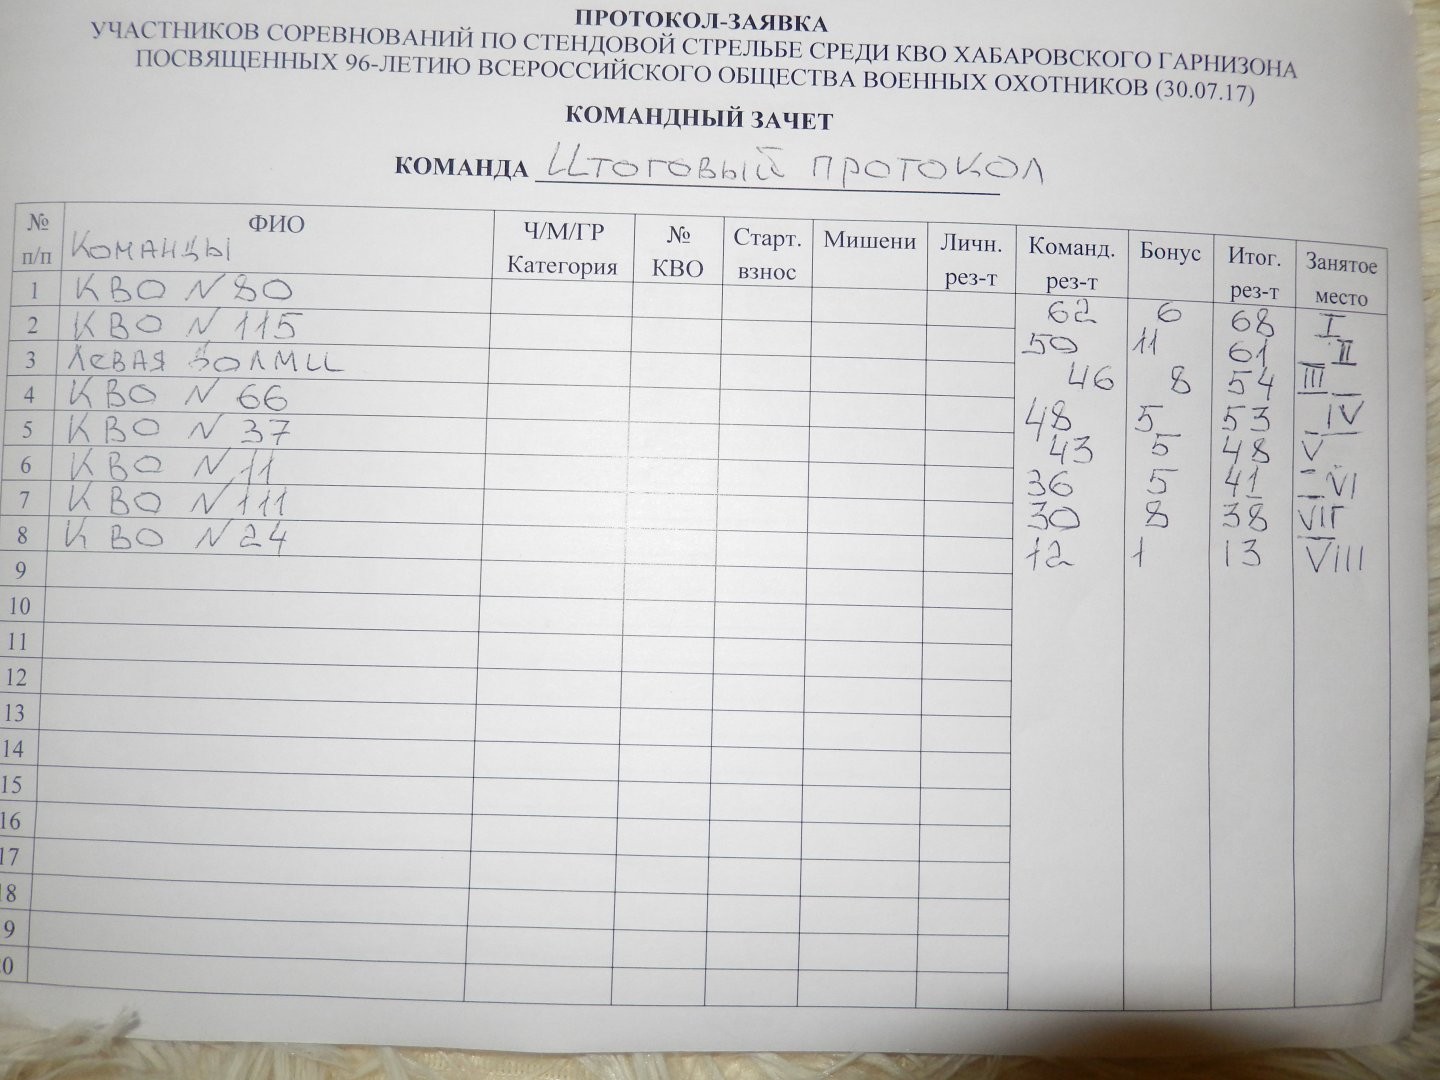 ПРОТОКОЛ-ЗАЯВКА
УЧАСТНИКОВ СОРЕВНОВАНИЙ ПО СТЕНДОВОЙ СТРЕЛЬБЕ СРЕДИ КВО ХАБАРОВСКОГО ГАРНИЗОНА
ПОСВЯЩЕННЫХ 96-ЛЕТИЮ ВСЕРОССИЙСКОГО ОБЩЕСТВА ВОЕННЫХ ОХОТНИКОВ (30.07.17)
КОМАНДНЫЙ ЗАЧЕТ
КОМАНДА Итоговый протокол
№ п/п ФИО Команды Ч/М/ГР Категория № КВО Старт. взнос Мишени Личн. рез-т Команд. рез-т Бонус Итог. рез-т Занятое место
1 КВО N 80 62 6 68 I
2 КВО N 115 50 11 61 II
3 Левая 46 8 54 III
4 КВО N 66 48 5 53 IV
5 КВО N 37 43 5 48 V
6 КВО N 11 36 5 41 VI
7 КВО N 111 30 8 38 VII
8 КВО N 24 12 1 13 VIII
9
10
11
12
13
14
15
16
17
18
9
0